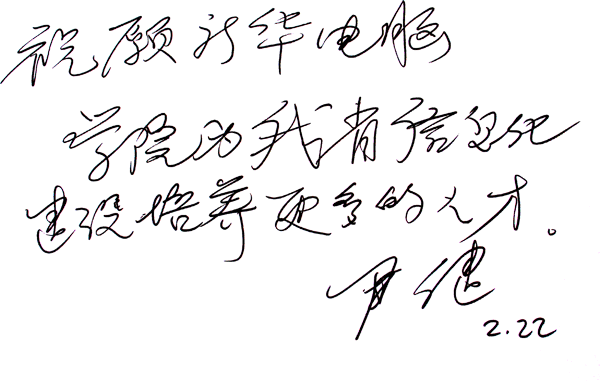 祝愿新华电脑
学院为我省信息化
建设培养更多的人才。
尹健
2.22